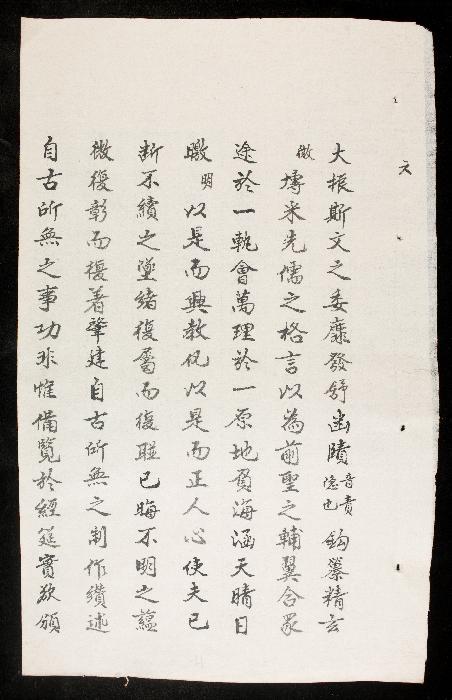 大振斯文之委靡發舒幽賾音責隱也鈎纂精玄
微博采先儒之格言以為前聖之輔翼合衆
途於一軌會萬理於一原地負海涵天晴日
曒明以是而興教化以是而正人心使夫已
斷不續之墜緒復屬而復聯已晦不明之蘊
微復彰而復著肇建自古所無之制作纘述
自古所無之事功非惟備覽於經筵實欲頒